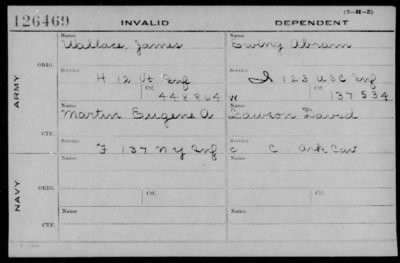 126469 INVALID DEPENDENT (3-H-3)
Name Name
Wallace, James Ewing Abram
ORIG. Service Service
H 12 Vt Inf I 123 USC Inf
ARMY Ctf. Ctf.
448864 W 137534
Name Name
Martin Eugene A Lawson David
CTF. Service Service
F 137 NY Inf C C 1 Ark Cav
Name Ctf. Name Ctf.
NAVY ORIG.
Name Name
CTF.